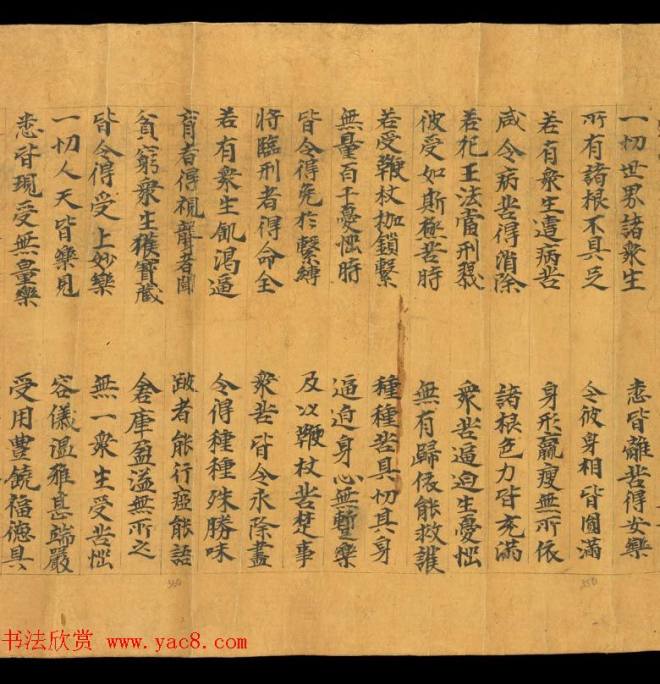 一切世界諸衆生　悉皆離苦得安樂
所有諸根不具足　令彼身相皆圓滿
若有衆生遭病苦　身形羸瘦無所依
咸令病苦得消除　諸根色力皆充滿
若犯王法當刑戮　衆苦逼迫生憂惱
彼受如斯極苦時　無有歸依能救護
若受鞭杖枷鎖繫　種種苦具切其身
無量百千憂惱時　逼迫身心無暫樂
皆令得免於繫縛　及以鞭杖苦楚事
將臨刑者得命全　衆苦皆令永除盡
若有衆生飢渴逼　令得種種殊勝味
盲者得視聾者聞　跛者能行瘂能語
貧窮衆生獲寶藏　倉庫盈溢無所乏
皆令得受上妙樂　無一衆生受苦惱
一切人天皆樂見　容儀溫雅甚端嚴
悉皆現受無量樂　受用豐饒福德具
书法欣赏 www.yac8.com